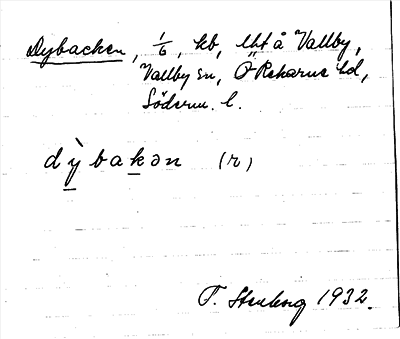 Dybacken, 1/6, kb, Utå Vallby,
Vallby sn, Ö Rekarne hd,
Söderm. l.
dỳ̱baḵən (r)
1932.